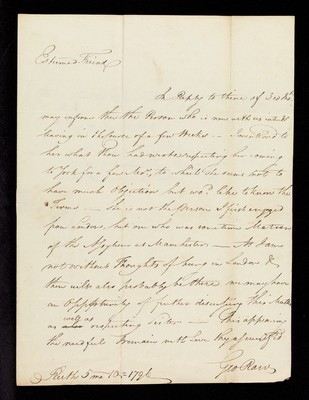 Esteemed Friend
In Reply to thine of 3rd Inst.
may inform thee the Person who is now with us intends
leaving in the course of a few Weeks — I mentioned to
her what thou had wrote respecting her coming
to York for a few Mos, to which she seems not to
have much Objection but wod. like to know the
Terms — She is not the Person I first engaged
from enders, but one who was some time Matron
of the Asylum at Manchester — As I am
not without Thoughts of being in London &
thou wilt also probably be there we may have
an Opportunity of further discussing this Matter
well as
as also respecting — This appears
the needful I remain with Love thy assured Frd
Geo Row
Perth 5 mo 10 1796